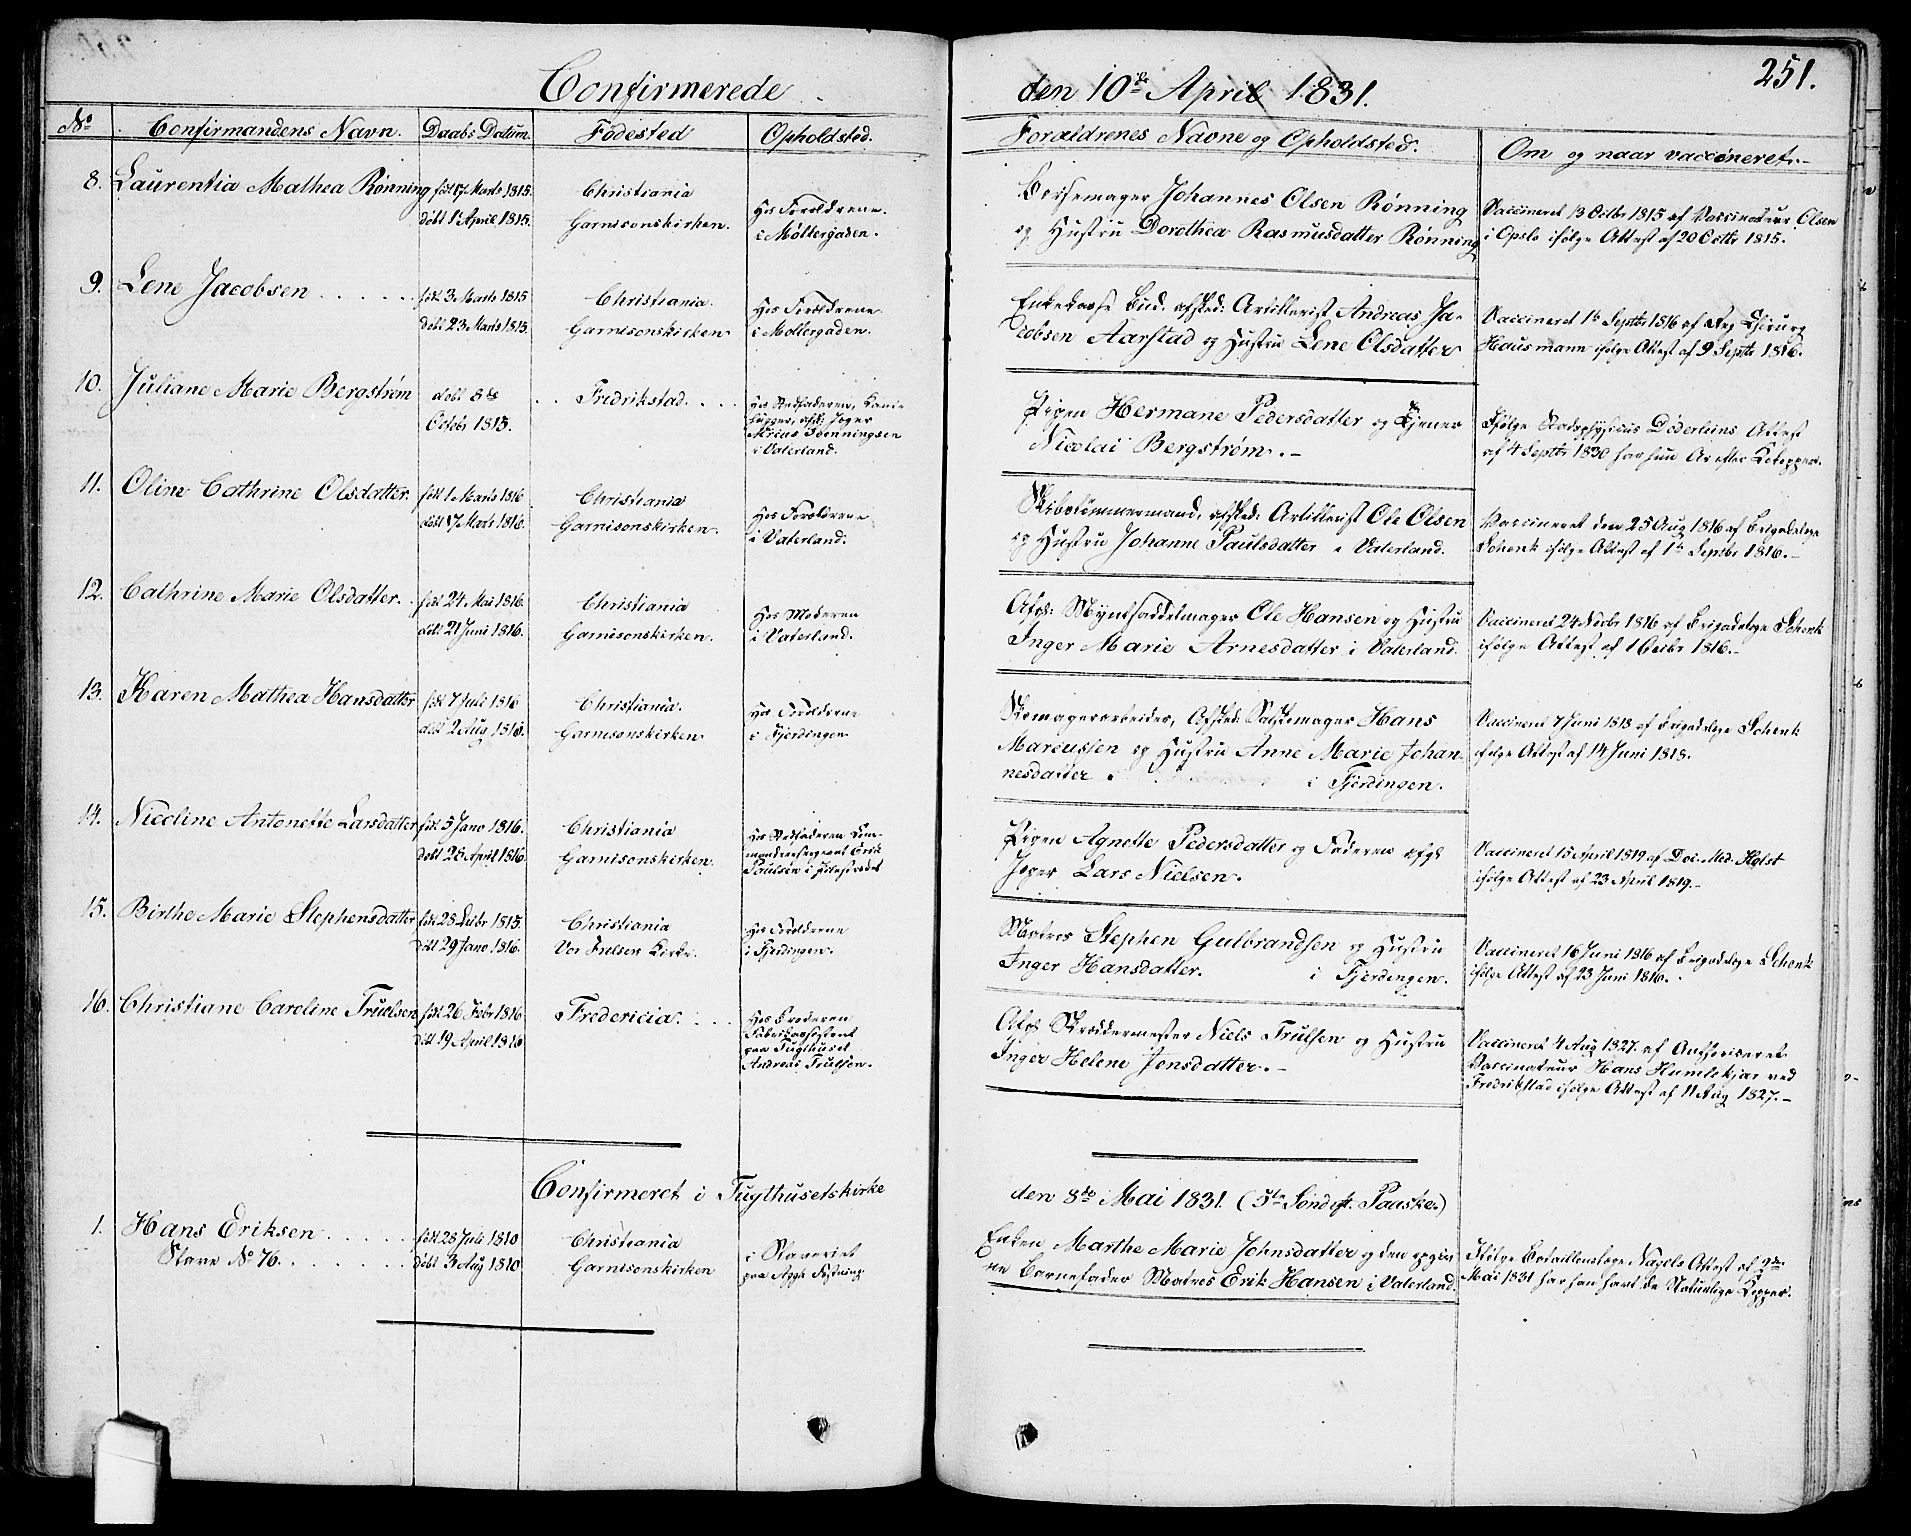 251.
Confirmerede den 10de April 1831.
No. Confirmandens Navn. Daabs Datum. Födested Opholdsted. Foraldrenes Navne og Opholdsted. Om og naar vaccineret.
8. Laurentia Mathea Rønning
föd 17 Marts 1815.
döbt 1 April 1815.
Christiania
Garnisonskirken.
Hos Forældrene
i Møllergaden.
Børsemager Johannes Olsen Rønning
og Hustru Dorothea Rasmusdatter Rønning
Vaccineret 13 Octbr 1815 af Vaccinateur Olsen
i Opslo ifølge Attest af 20 Octbr 1815.
9. Lene Jacobsen
föd 3 Marts 1815
döbt 23 Marts 1815.
Christiania.
Garnisonskirken.
Hos Forældrene
i Møllergaden.
Enkekasse Bud. afsked: Artillerist Andreas Ja-
cobsen Aarstad og Hustru Lene Olsdatter
Vaccineret 1te Septbr 1816 af Reg Chirurg
Hausmann ifølge Attest af 9 Septbr 1816.
10. Juliane Marie Bergstrøm
döbt 8de
Octobr 1815.
Fredrikstad.
Hos Stedfaderen,
afsk: Jæger
Bønningsen
i Vaterland.
Pigen Hermane Pedersdatter og Tjener
Nicolai Bergstrøm.-
Ifølge Stadsphysicus Döderleins Attest
af 4 Septbr 1830 har hun Ar efter Kokopper.
11. Oline Cathrine Olsdatter
föd 1 Marts 1816
döbt 17 Marts 1816.
Christiania
Garnisonskirken.
Hos Forældrene
i Vaterland.
Skibstömmermand, afsked: Artillerist Ole Olsen
og Hustru Johanne Paulsdatter i Vaterland.
Vaccineret den 25 Aug 1816 af Brigadelæge
Schenk ifølge Attest af 1te Septbr 1816.-
12. Cathrine Marie Olsdatter
föd 24 Mai 1816.
döbt 21 Juni 1816.
Christiania
Garnisonskirken.
Hos Moderen
i Vaterland.
Afgs: Myntsaddelmager Ole Hansen og Hustru
Inger Marie Arnesdatter i Vaterland.
Vaccineret 24 1816 af Brigadelæge Schenk
ifølge Attest af 1 1816.-
13. Karen Mathea Hansdatter
föd 7 Juli 1816
döbt 2 Aug 1816.
Christiania.
Garnisonskirken.
Hos Forældrene
i Fjerdingen
Skomagerarbeider, Afsked: Hans
Marcussen og Hustru Anne Marie Johan-
nesdatter i Fjerdingen.
Vaccineret 7 Juni 1818 af Brigadelæge Schenk
ifølge Attest af 14 Juni 1818.
14. Nicoline Antonette Larsdatter
föd 5 Jano 1816.
döbt 28 April 1816.
Christiania
Garnisonskirken.
Hos Stedfaderen Com-
mandeersergeant Erik
Paulsen i
Pigen Agnette Pedersdatter og Faderen afgs
Jæger Lars Nielsen.
Vaccineret 15 April 1819 af Doc. Med. Holst
ifølge Attest af 23 April 1819.-
15. Birthe Marie Stephensdatter
föd 28 1815.
döbt 29 Jano 1816.
Christiania
Vor Frelsers Kirke.
Hos Forældrene
i Fjerdingen.
Matros Stephen Gulbrandsen og Hustru
Inger Hansdatter. i Fjerdingen.
Vaccineret 16 Juni 1816 af Brigadelæge Schenk
ifølge Attest af 23 Juni 1816.
16. Christiane Caroline Truelsen
föd 26 Febr 1816
döbt 19 April 1816
Fredericia.
Hos Broderen
paa Tugthuset
Andreas Truelsen.
Afgs Skræddermester Niels Trulsen og Hustru
Inger Helene Jensdatter.-
Vaccineret 4 Aug 1827. af Authoriseret
Vaccinateur Hans Humlekjær ved
Fredrikstad ifølge Attest af 11 Aug 1827.-
Confirmeret i Tugthusetskirke den 8de Mai 1831. (5te Sönd eft. Paaske.)
1. Hans Eriksen
Slave No 76.
föd 28 Juli 1810
döbt 3 Aug 1810
Christiania
Garnisonskirken
i Slaveriet
paa Aggh Fæstning
Enken Marthe Marie Johnsdatter og den opgiv-
ne Barnefader Matros Erik Hansen i Vaterland
Ifølge Bataillonslæge Nagels Attest af 9de
Mai 1831 har han havt de Naturlige Kopper.